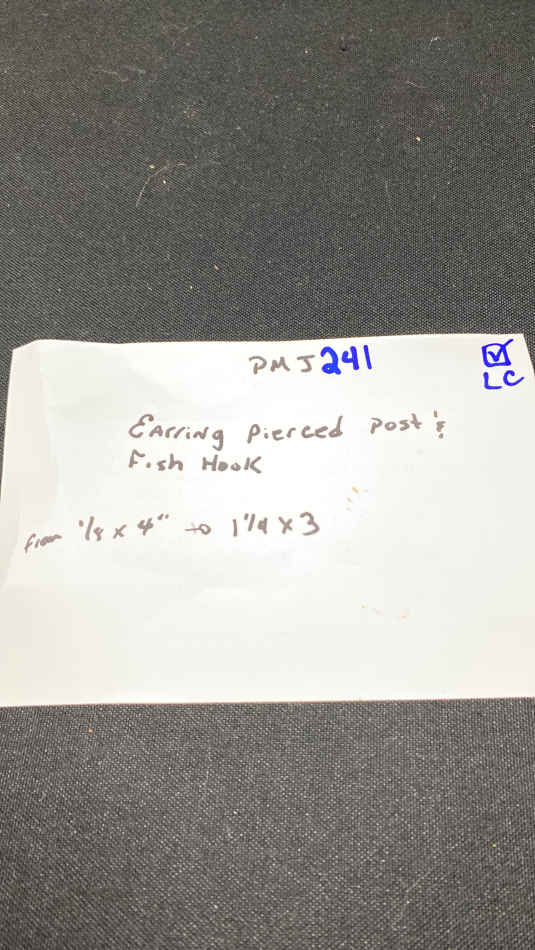 PMJ241
☑
LC
Earring Pierced Post &
Fish Hook
from 1/8 x 4" to 1 1/4 x 3